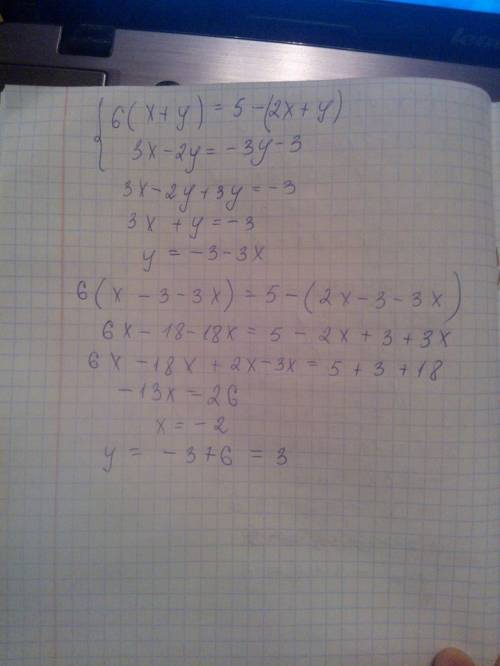 6(x+y) = 5-(2x+y)
3x-2y = -3y-3
3x-2y+3y = -3
3x+y = -3
y = -3-3x
6(x-3-3x) = 5-(2x-3-3x)
6x-18-18x = 5-2x+3+3x
6x-18x+2x-3x = 5+3+18
-13x = 26
x = -2
y = -3+6 = 3